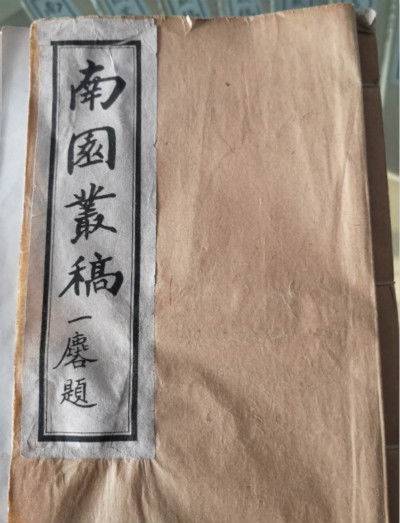 南園叢稿 一麐題